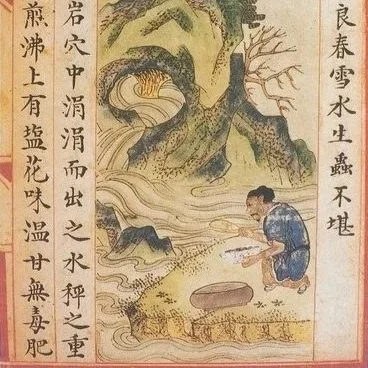 良春雪水生蟲不堪
岩穴中涓涓而出之水秤之重
煎沸上有塩花味温甘無毒肥